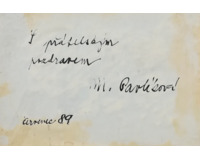 S přátelským
pozdravem
M. Pavlisová
červenec 89